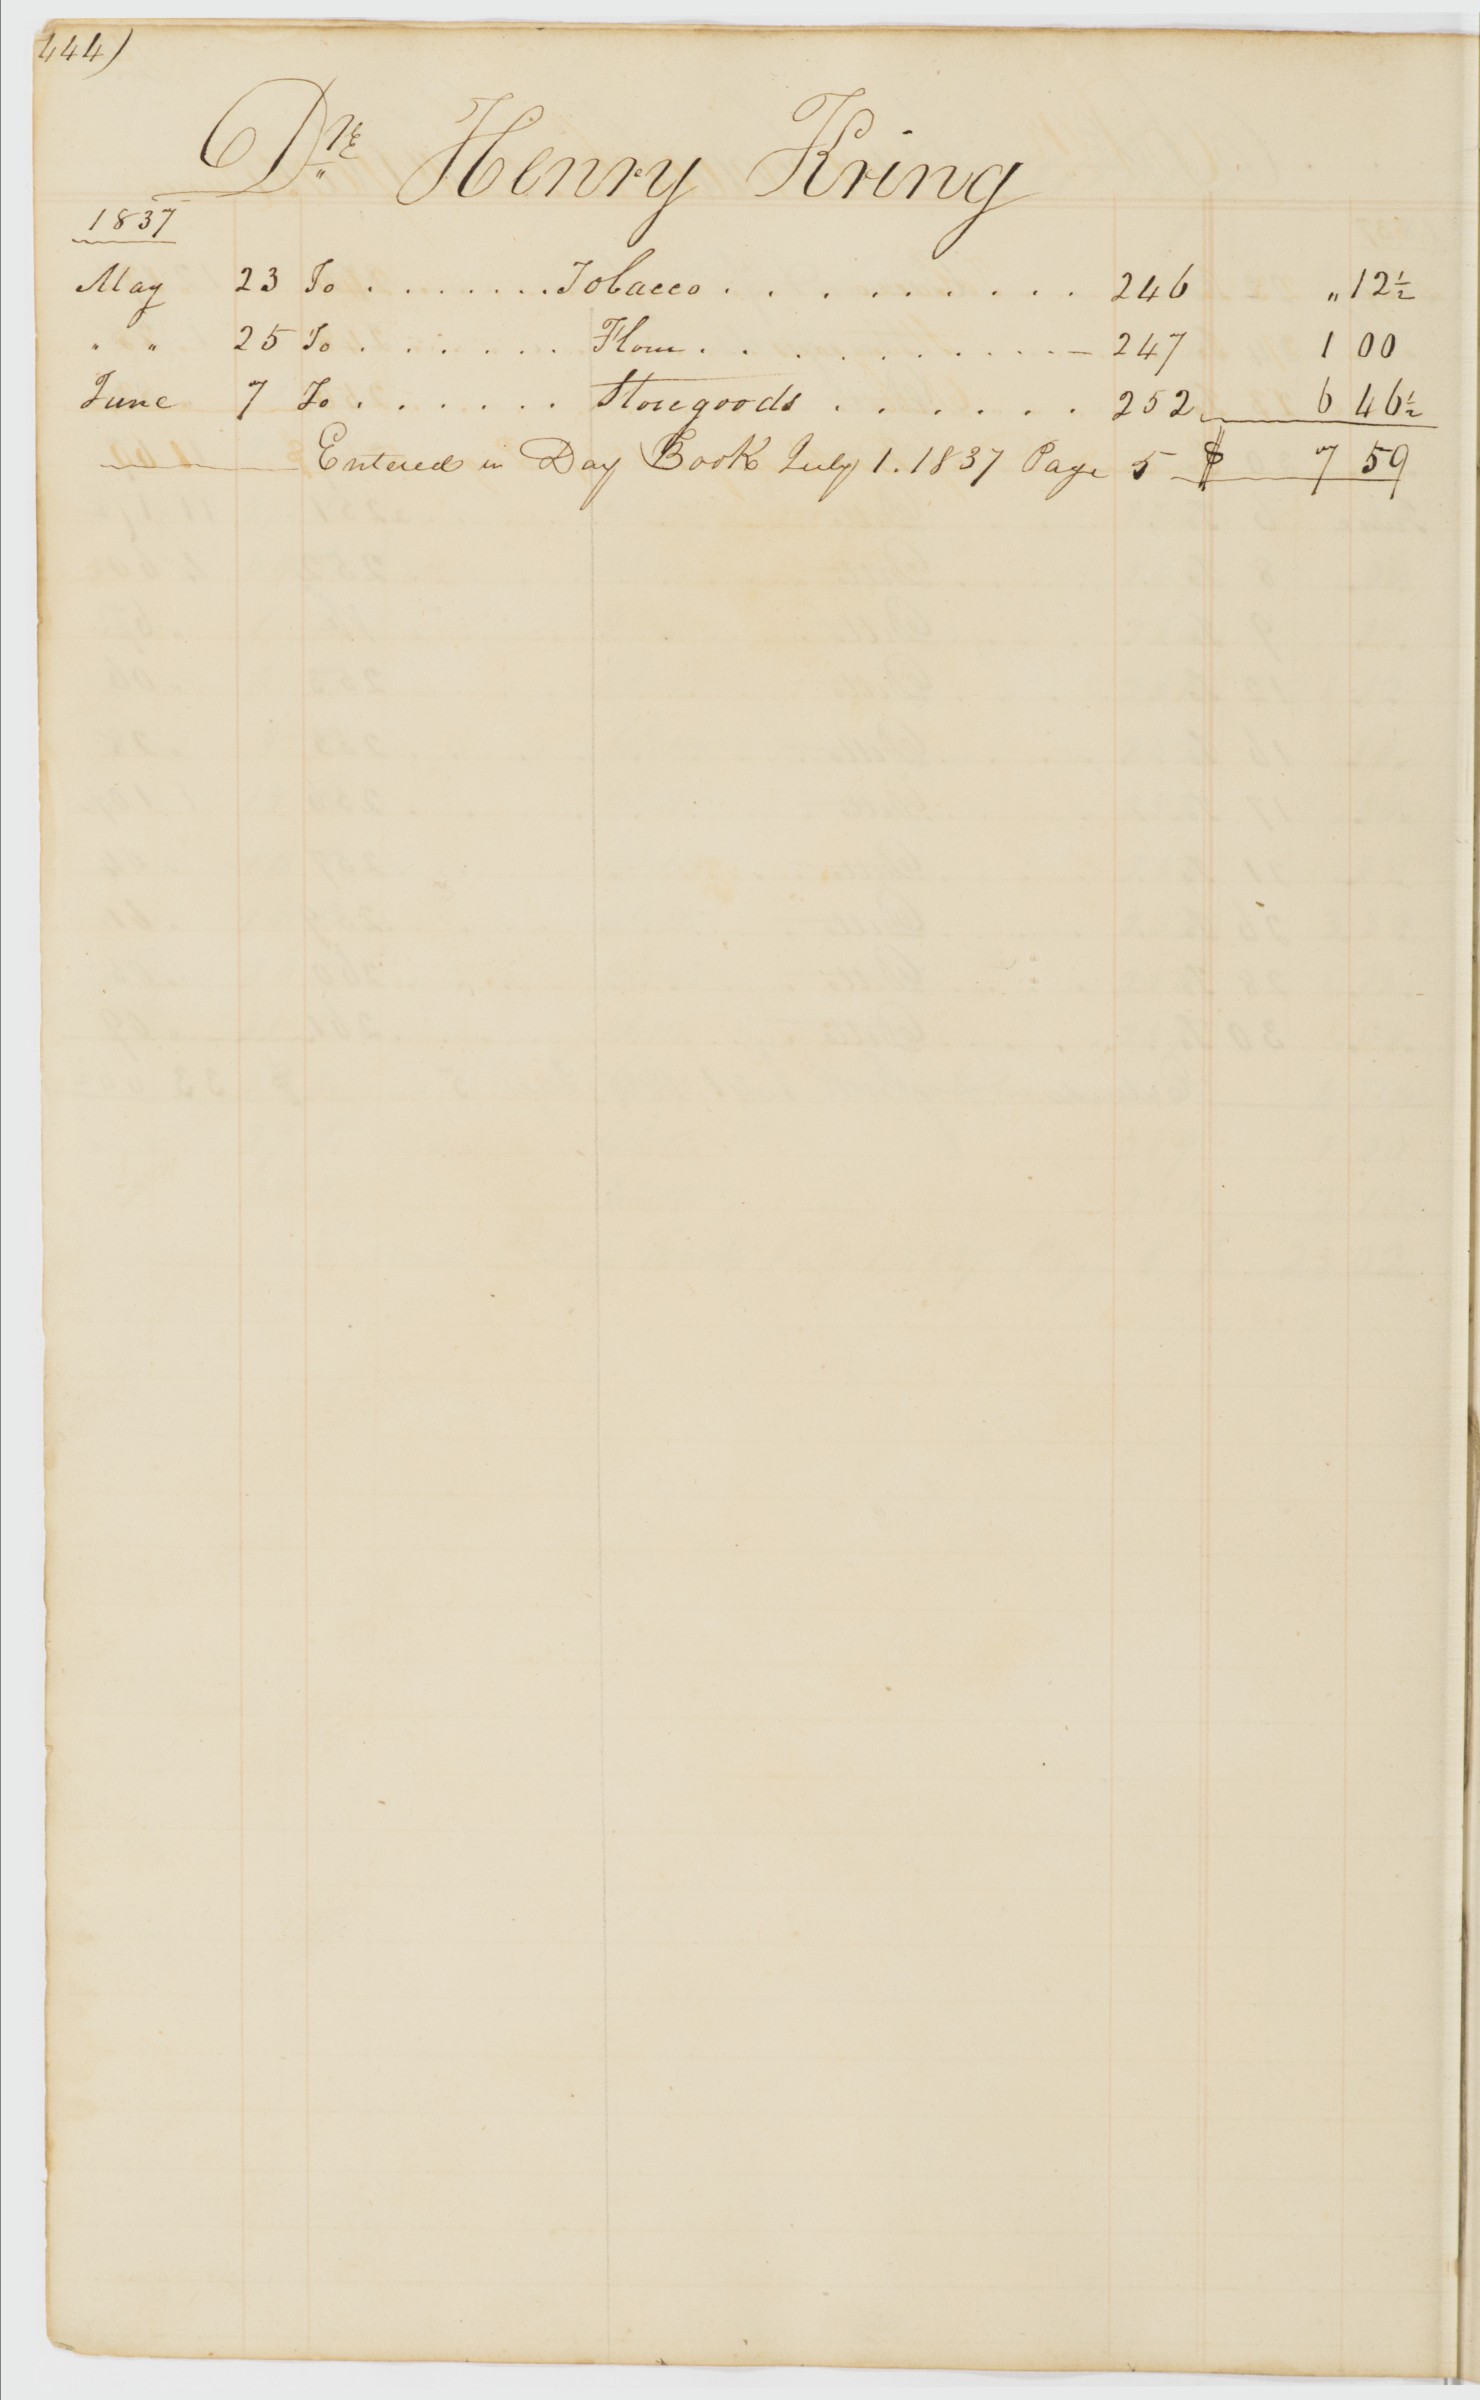 444)
Dr. Henry Kring
1837
May 23 To . . . . . . . Tobacco . . . . . . . . . 246 " 12½
" " 25 To . . . . . . Flour . . . . . . . . . . . — 247 1 00
June 7 To . . . . . . Storegoods . . . . . . 252 6 46½
Entered in Day Book July 1. 1837 Page 5 $ 7 59